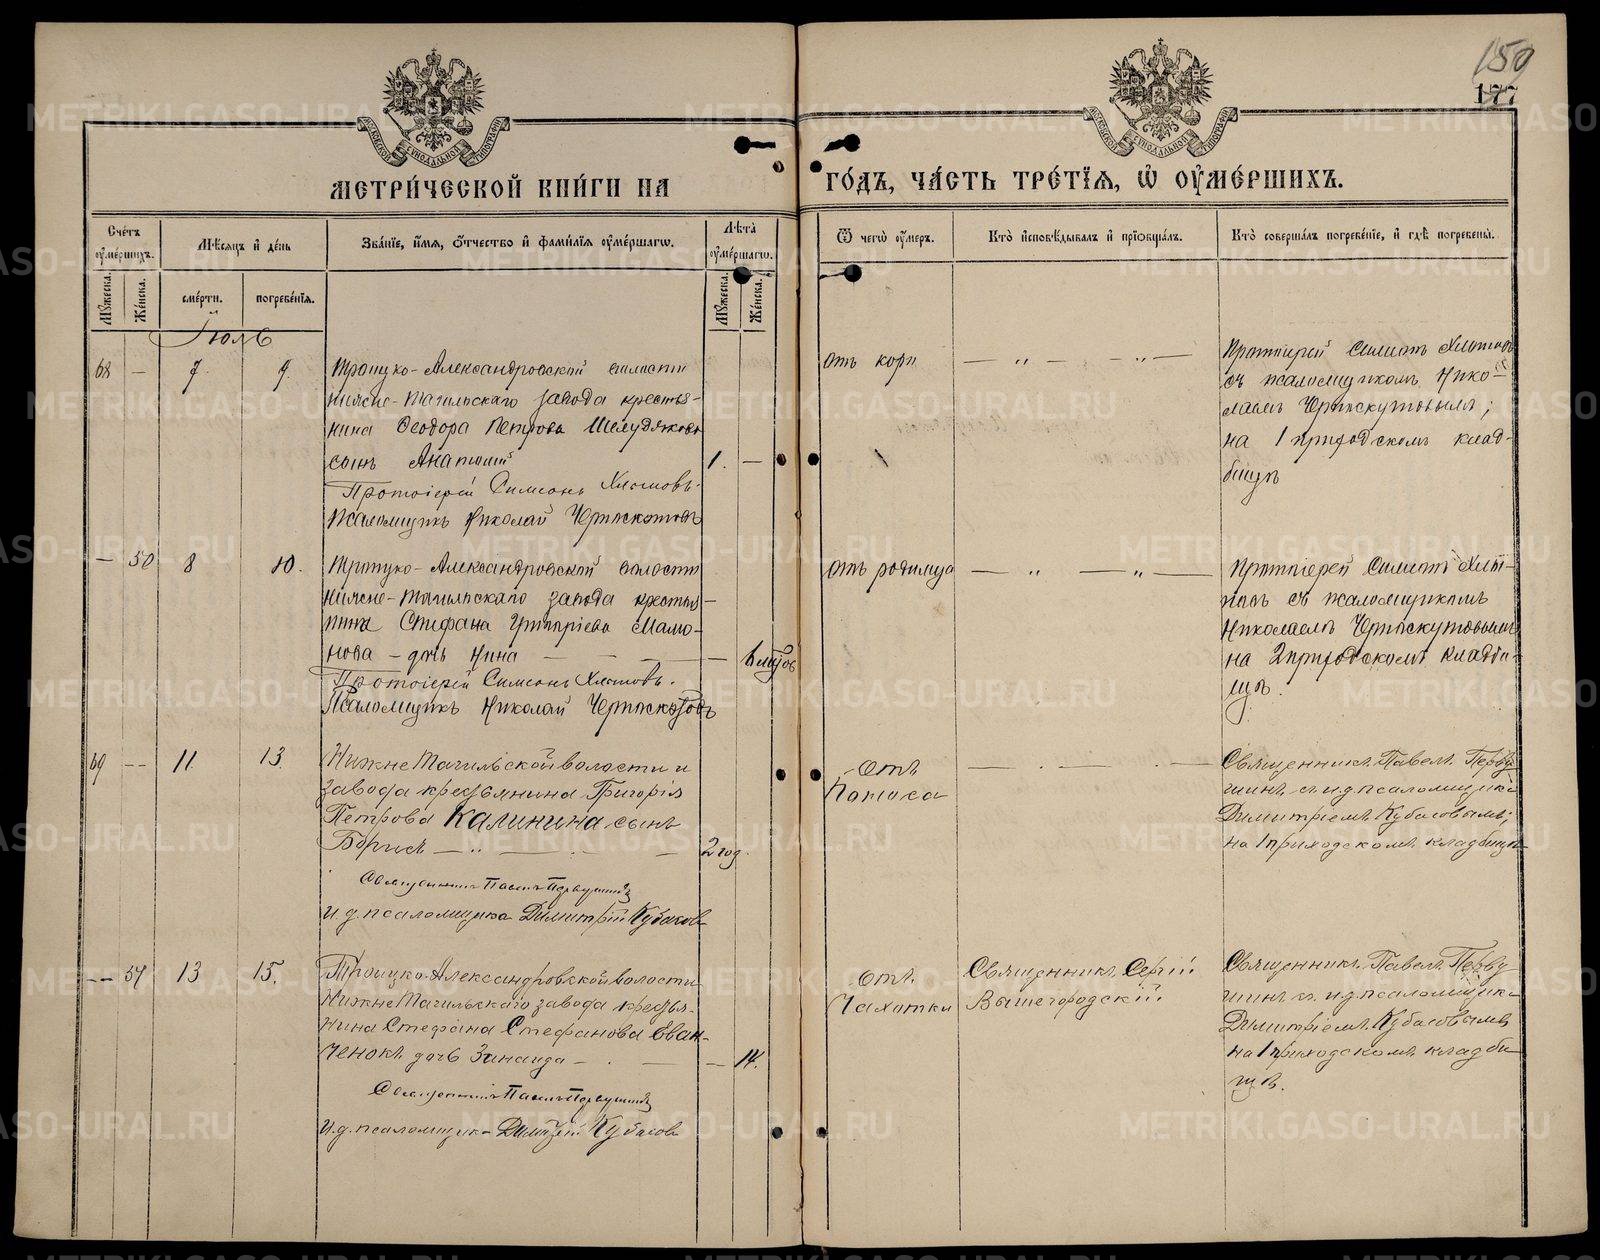 150
177
МОСКОВСКОЙ СѴНОДАЛЬНОЙ ТИПОГРАФІИ
МОСКОВСКОЙ СѴНОДАЛЬНОЙ ТИПОГРАФІИ
МЕТРИ́ЧЕСКОЙ КНИ́ГИ НА
ГО́ДЪ, ЧА́СТЬ ТРЕ́ТІѦ, Ѿ ОУМЕ́РШИХЪ.
Сче́тъ оуме́ршихъ.
Мѣ́сяцъ и де́нь
Зва́ніе, и́мя, о́тчество и фами́лія оуме́ршагѡ.
Лѣ́та оуме́ршагѡ.
Ѿ чегѡ̀ оу́меръ.
Кто̀ исповѣ́дывалъ и пріѡбща́лъ.
Кто̀ соверша́лъ погребе́ніе, и гдѣ̀ погребены̀.
Му́жеска.
Же́нска.
сме́рти.
погребе́нія.
Му́жеска.
Же́нска.
Іюль
68 — 7 9
Троицко-Александровской волости
Нижне-Тагильскаго завода крестья-
нина Ѳеодора Петрова Шелудякова
сынъ Анатолій
1. —
Протоіерей Симеонъ Хлыновъ.
Псаломщикъ Николай Черноскутовъ
отъ кори
— „ — „ —
Протоіерей Симеонъ Хлыновъ
съ псаломщикомъ Нико-
лаемъ Черноскутовымъ;
на 1 приходскомъ клад-
бищѣ
— 50 8 10.
Троицко-Александровской волости
Нижне-Тагильскаго завода крестья-
нина Стефана Григоріева Мамо-
нова — дочь Нина — —
— 6 мѣсяцовъ
Протоіерей Симеонъ Хлыновъ.
Псаломщикъ Николай Черноскутовъ
отъ родимца
— „ — „ —
Протоіерей Симеонъ Хлы-
новъ съ псаломщикомъ
Николаемъ Черноскутовымъ
на 2 приходскомъ кладби-
щѣ.
69 — 11 13
Нижне Тагильской волости и
завода крестьянина Григорія
Петрова Калинина сынъ
Борисъ — „ — —
2 год.
Священникъ Павелъ Первушинъ
И. д. псаломщика Димитрій Кубасовъ
Отъ
Поноса
— . — . —
Священникъ Павелъ Перву-
шинъ съ и. д. псаломщика
Димитріемъ Кубасовымъ;
на 1 приходскомъ кладбищѣ
— 51 13 15.
Троицко-Александровской волости
Нижне Тагильскаго завода крестья-
нина Стефана Стефанова Еван-
ченокъ дочь Зинаида — . —
— 14.
Священникъ Павелъ Первушинъ
И. д. псаломщика Димитрій Кубасовъ
Отъ
Чахотки
Священникъ Сергій
Вышегородскій
Священникъ Павелъ Перву
шинъ съ и. д. псаломщика
Димитріемъ Кубасовымъ
на 1 приходскомъ кладби-
щѣ.
METRIKI.GASO-URAL.RU